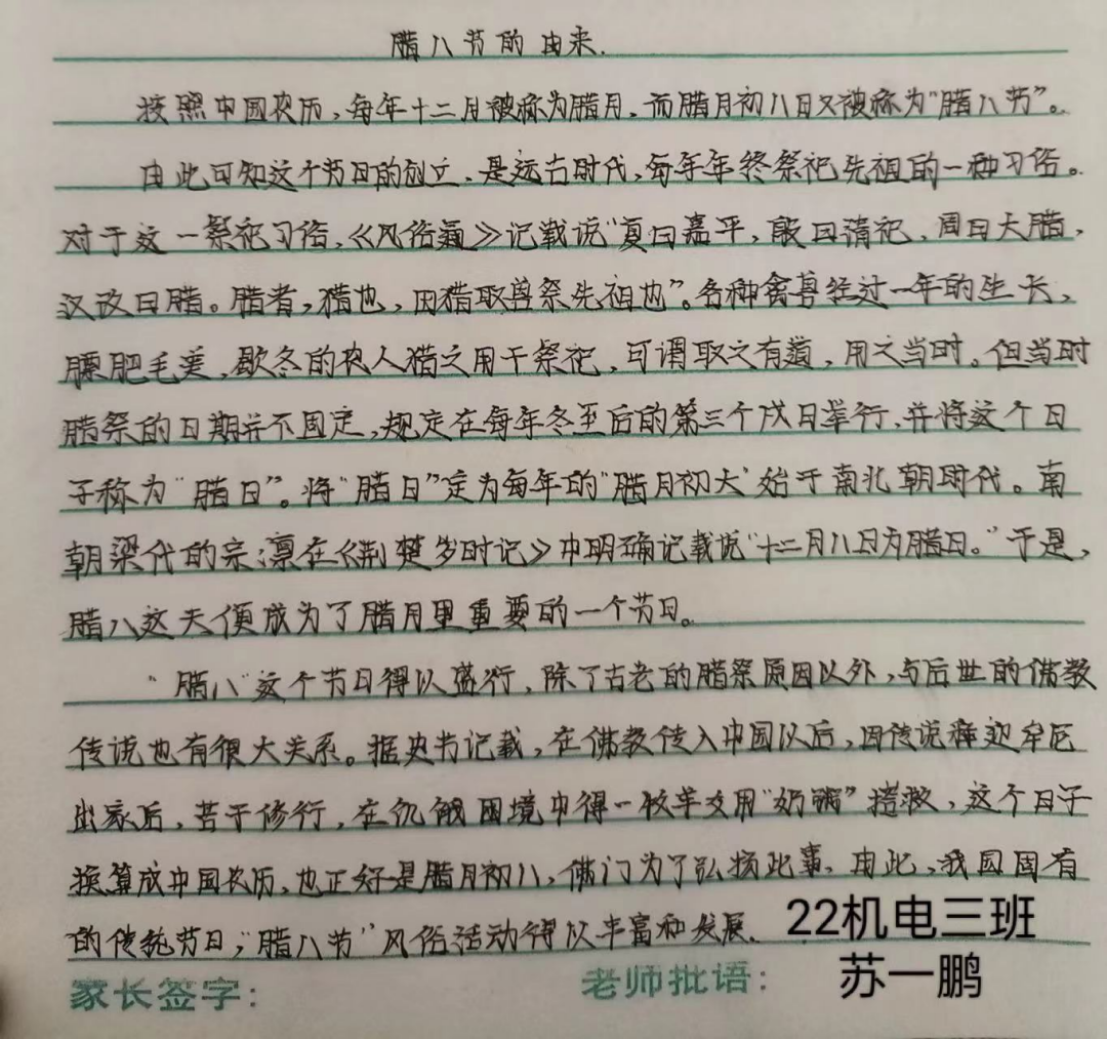 腊八节的由来.
按照中国农历,每年十二月被称为腊月,而腊月初八日又被称为"腊八节"。
由此可知这个节日的创立,是远古时代,每年年终祭祀先祖的一种习俗。
对于这一祭祀习俗,《风俗通》记载说"夏曰嘉平,殷曰清祀,周曰大腊,
汉改曰腊。腊者,猎也,因猎取兽祭先祖也"。各种禽兽经过一年的生长,
膘肥毛美,歇冬的农人猎之用于祭祀,可谓取之有道,用之当时。但当时
腊祭的日期并不固定,规定在每年冬至后的第三个戌日举行,并将这个日
子称为"腊日"。将"腊日"定为每年的"腊月初大'始于南北朝时代。南
朝梁代的宗懔在《荆楚岁时记》中明确记载说"十二月八日为腊日。"于是,
腊八这天便成为了腊月里重要的一个节日。
"腊八"这个节日得以盛行,除了古老的腊祭原因以外,与后世的佛教
传说也有很大关系。据史书记载,在佛教传入中国以后,因传说释迦牟尼
出家后,苦于修行,在饥饿困境中得一牧羊女用"奶粥"搭救,这个日子
换算成中国农历,也正好是腊月初八,佛门为了弘扬此事,由此,我国固有
的传统节日,"腊八节"风俗活动得以丰富和发展.
22机电三班
苏一鹏
家长签字:
老师批语: